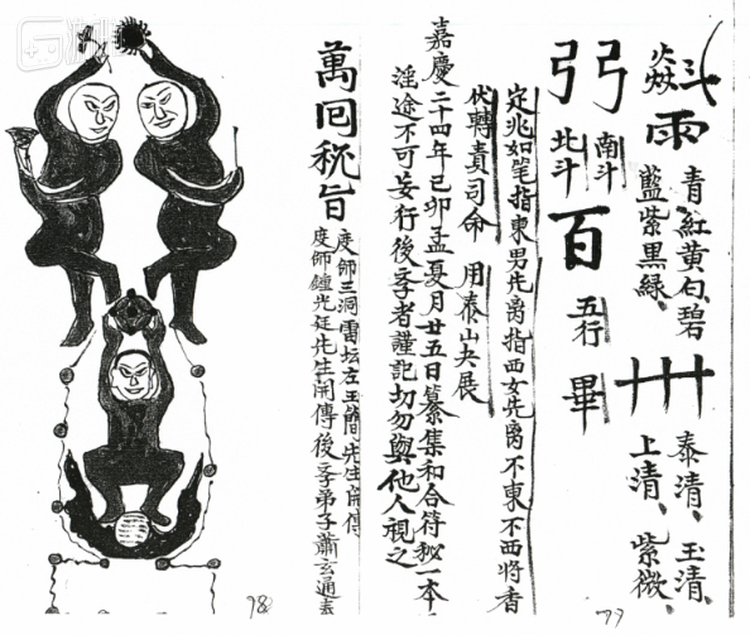 斗
焱
雨
青、紅黄白、碧
藍紫黒緑、
卅
泰清、玉清、
上清、紫微、
弓弓
南斗
北斗
百
五行
畢
定兆如笔指東男先离指西女先离不東不西將香
伏轉責司命 用泰山夬展
嘉慶二十四年己卯孟夏月廿五日纂集和合符秘一本
淫途不可妄行後孝者謹記切勿與他人視之
萬囘秘旨
度師三洞雷坛左王簡先生開傳
度師鍾光廷先生開傳後孝弟子蕭玄通
78
77